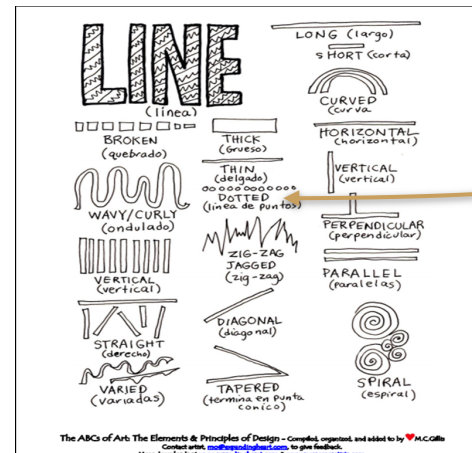 LINE
(línea)
BROKEN
(quebrado)
WAVY/CURLY
(ondulado)
VERTICAL
(vertical)
STRAIGHT
(derecho)
VARIED
(variadas)
THICK
(Grueso)
THIN
(delgado)
DOTTED
(línea de puntos)
ZIG-ZAG
JAGGED
(zig-zag)
DIAGONAL
(diagonal)
TAPERED
(termina en punta
conico)
LONG (largo)
SHORT (corta)
CURVED
(curva
HORIZONTAL
(horizontal)
VERTICAL
(vertical)
PERPENDICULAR
(perpendicular)
PARALLEL
(paralelas)
SPIRAL
(espiral)
The ABCs of Art: The Elements & Principles of Design – Compiled, organized, and added to by M.C.Gillis
Contact artist, mo@expandingheart.com, to give feedback.